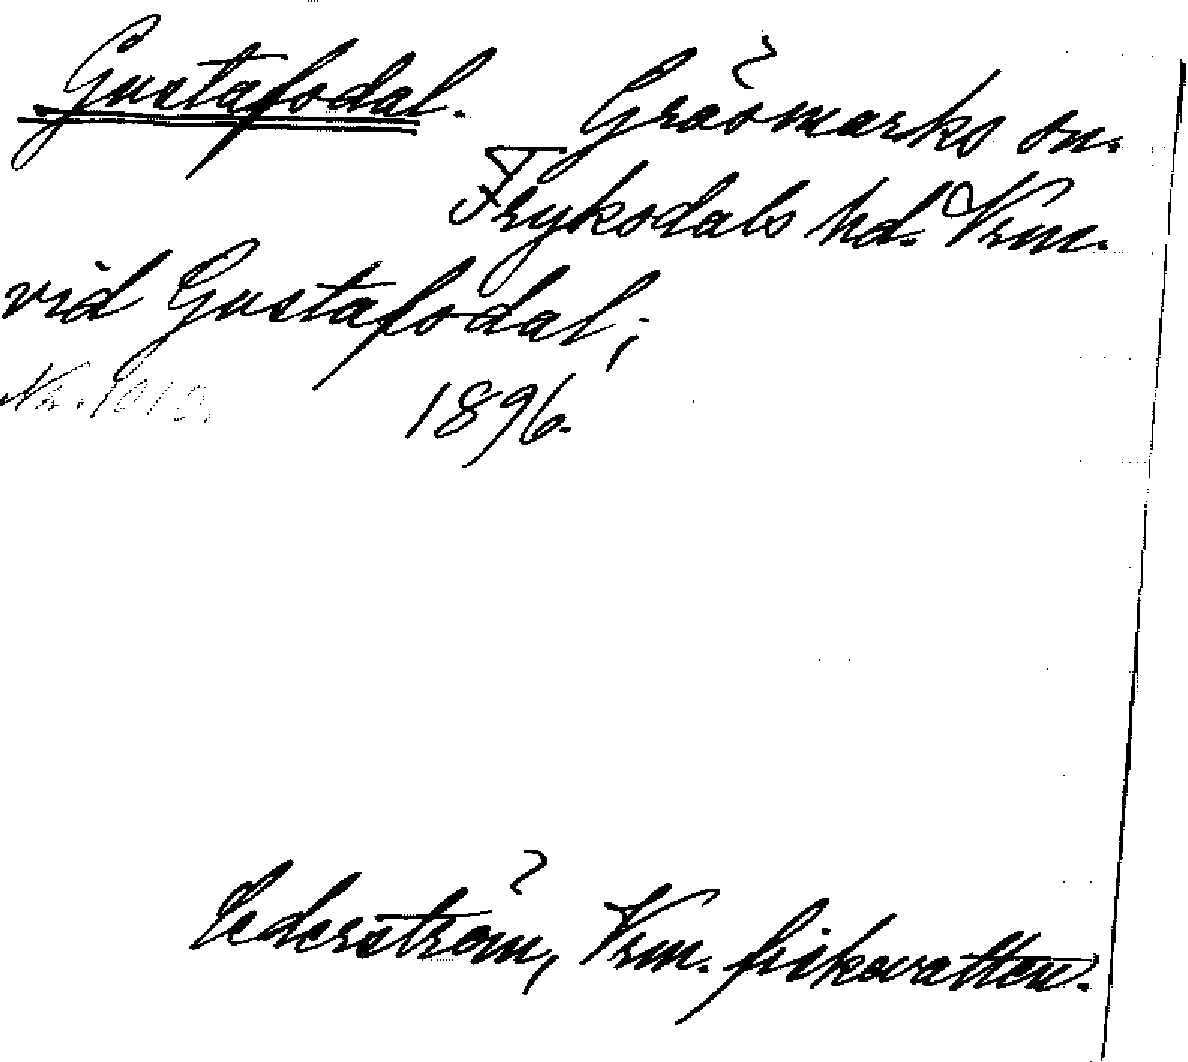 Gustafsdal. Gräsmarks sn.
Fryksdals hd. Vrm.
vid Gustafsdal;
1896.
Cederström, Vrm. fiskevatten.